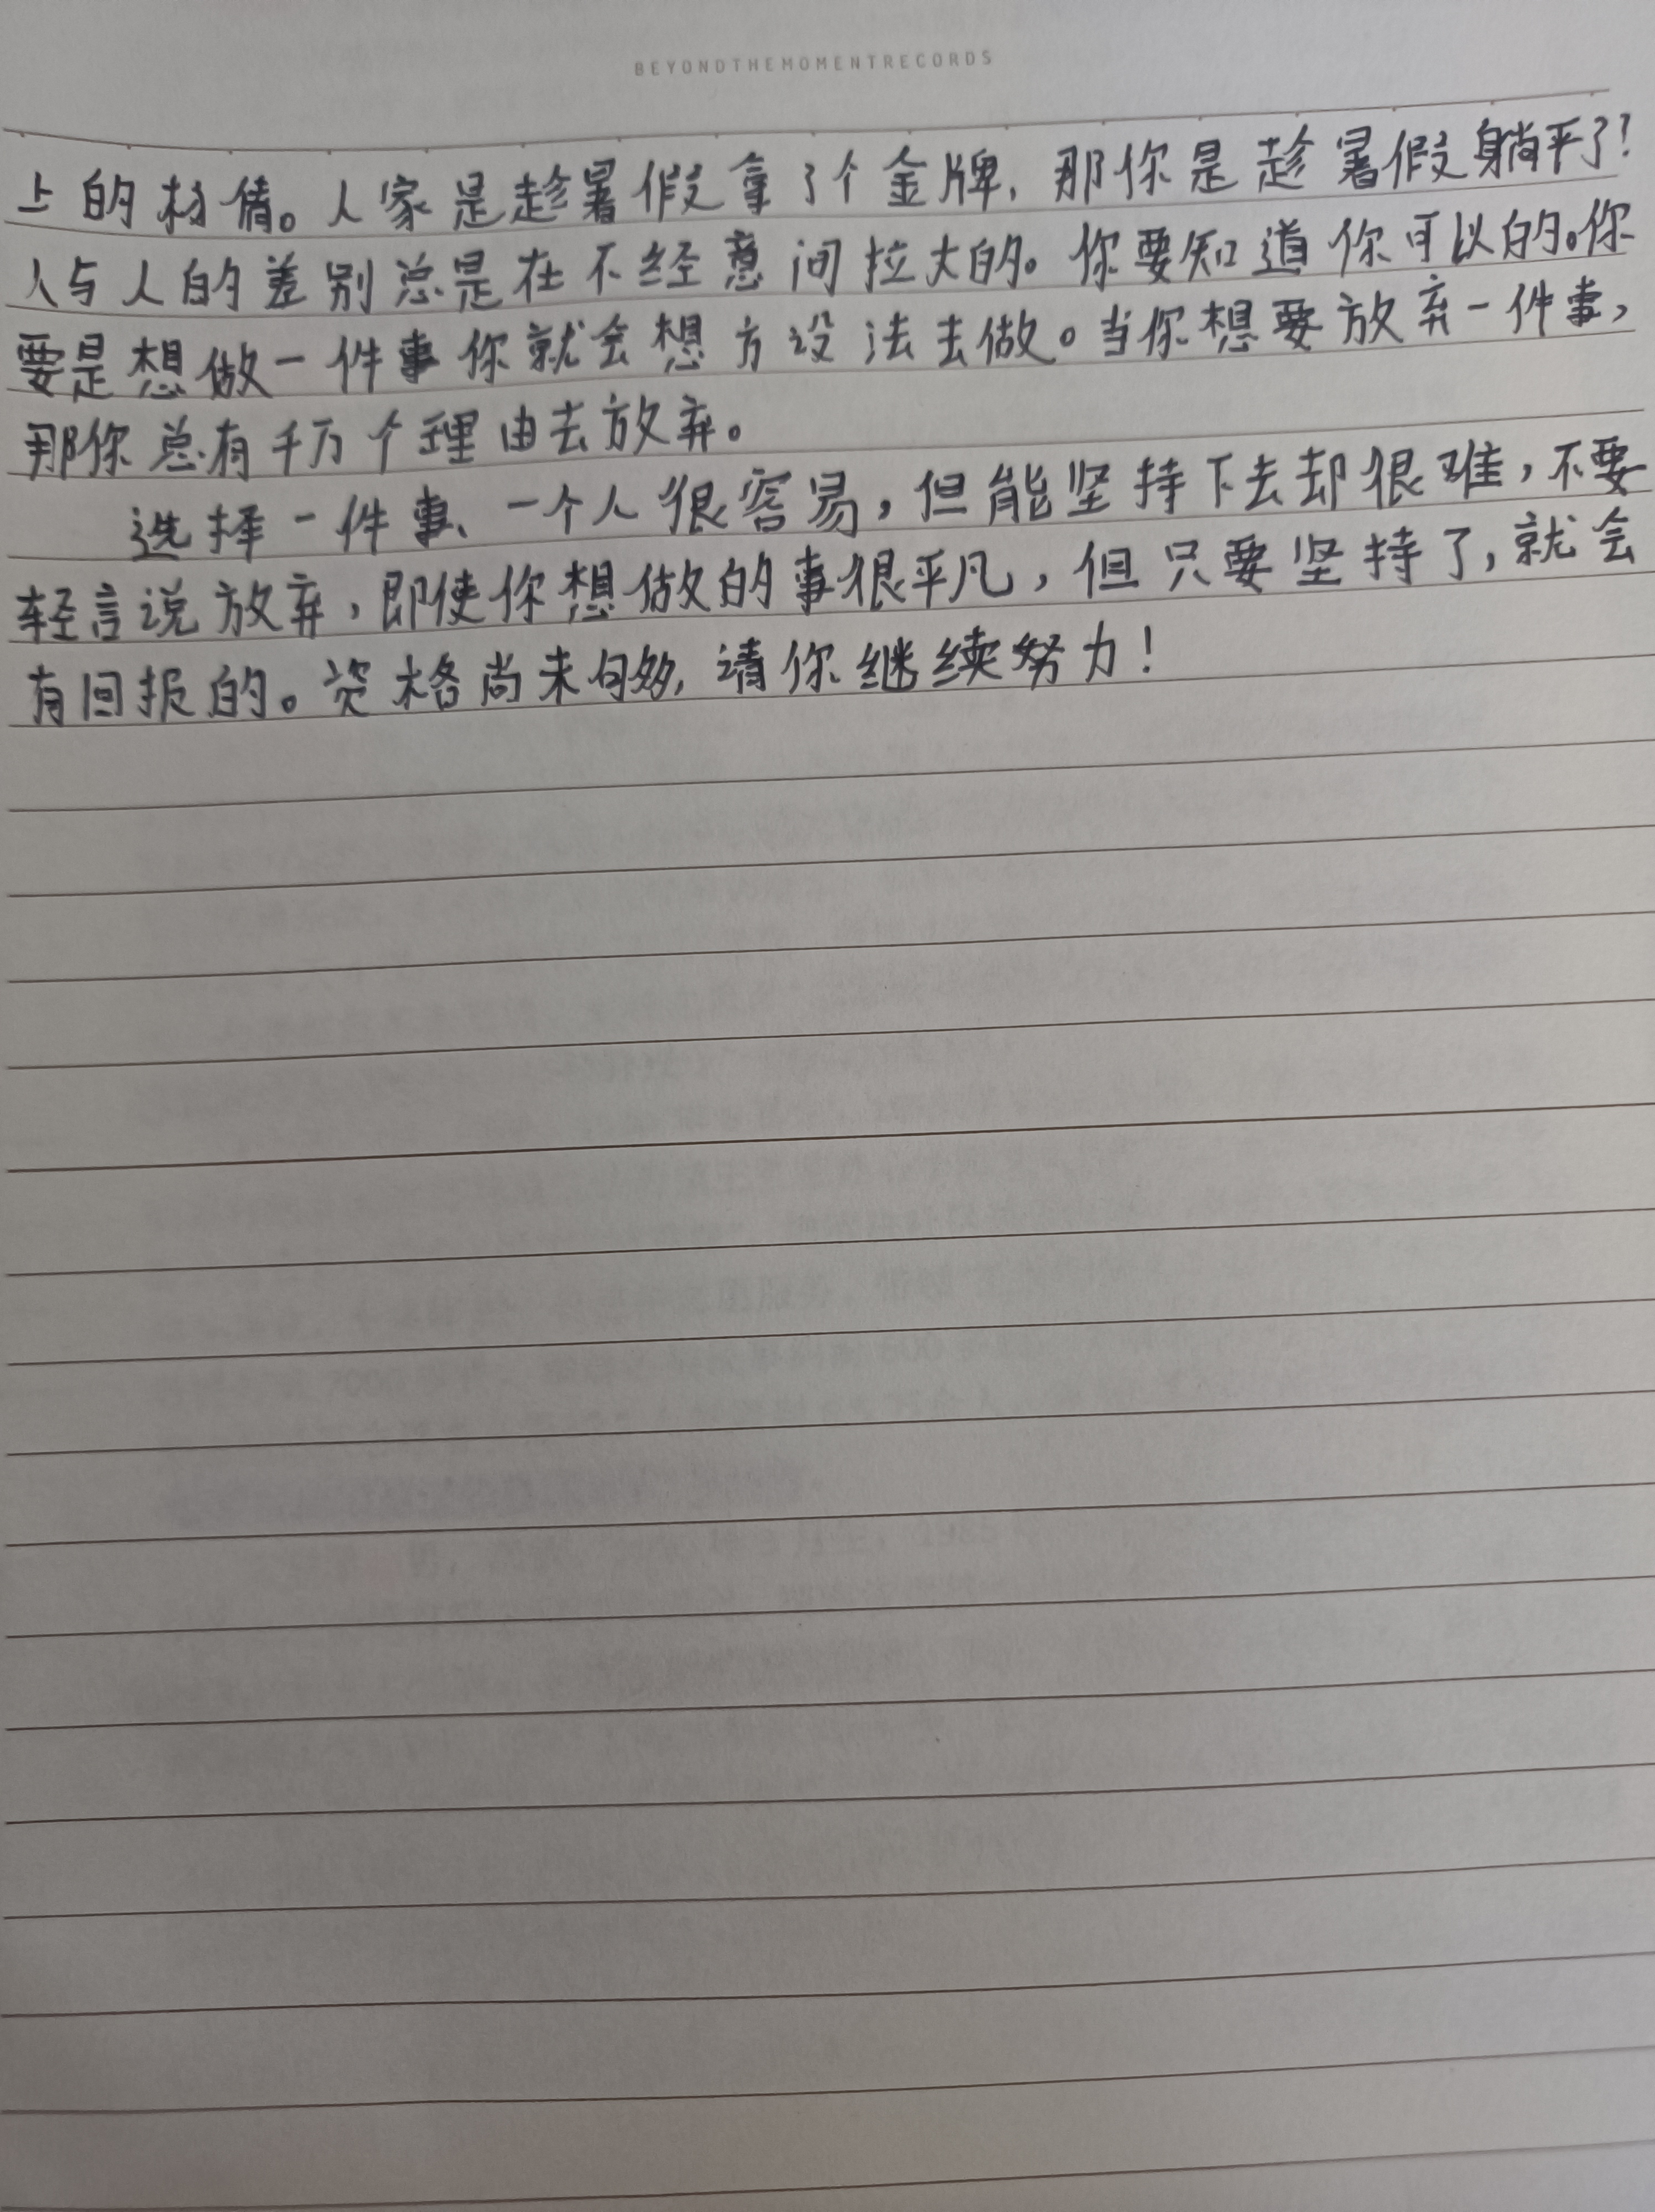 BEYONDTHEMOMENTRECORDS
上的材俑。人家是趁暑假拿了个金牌,那你是趁暑假躺平了?
人与人的差别总是在不经意间拉大的。你要知道你可以的。你
要是想做一件事你就会想方设法去做。当你想要放弃一件事,
那你总有千万个理由去放弃。
选择一件事、一个人很容易,但能坚持下去却很难,不要
轻言说放弃,即使你想做的事很平凡,但只要坚持了,就会
有回报的。资格尚未够,请你继续努力!